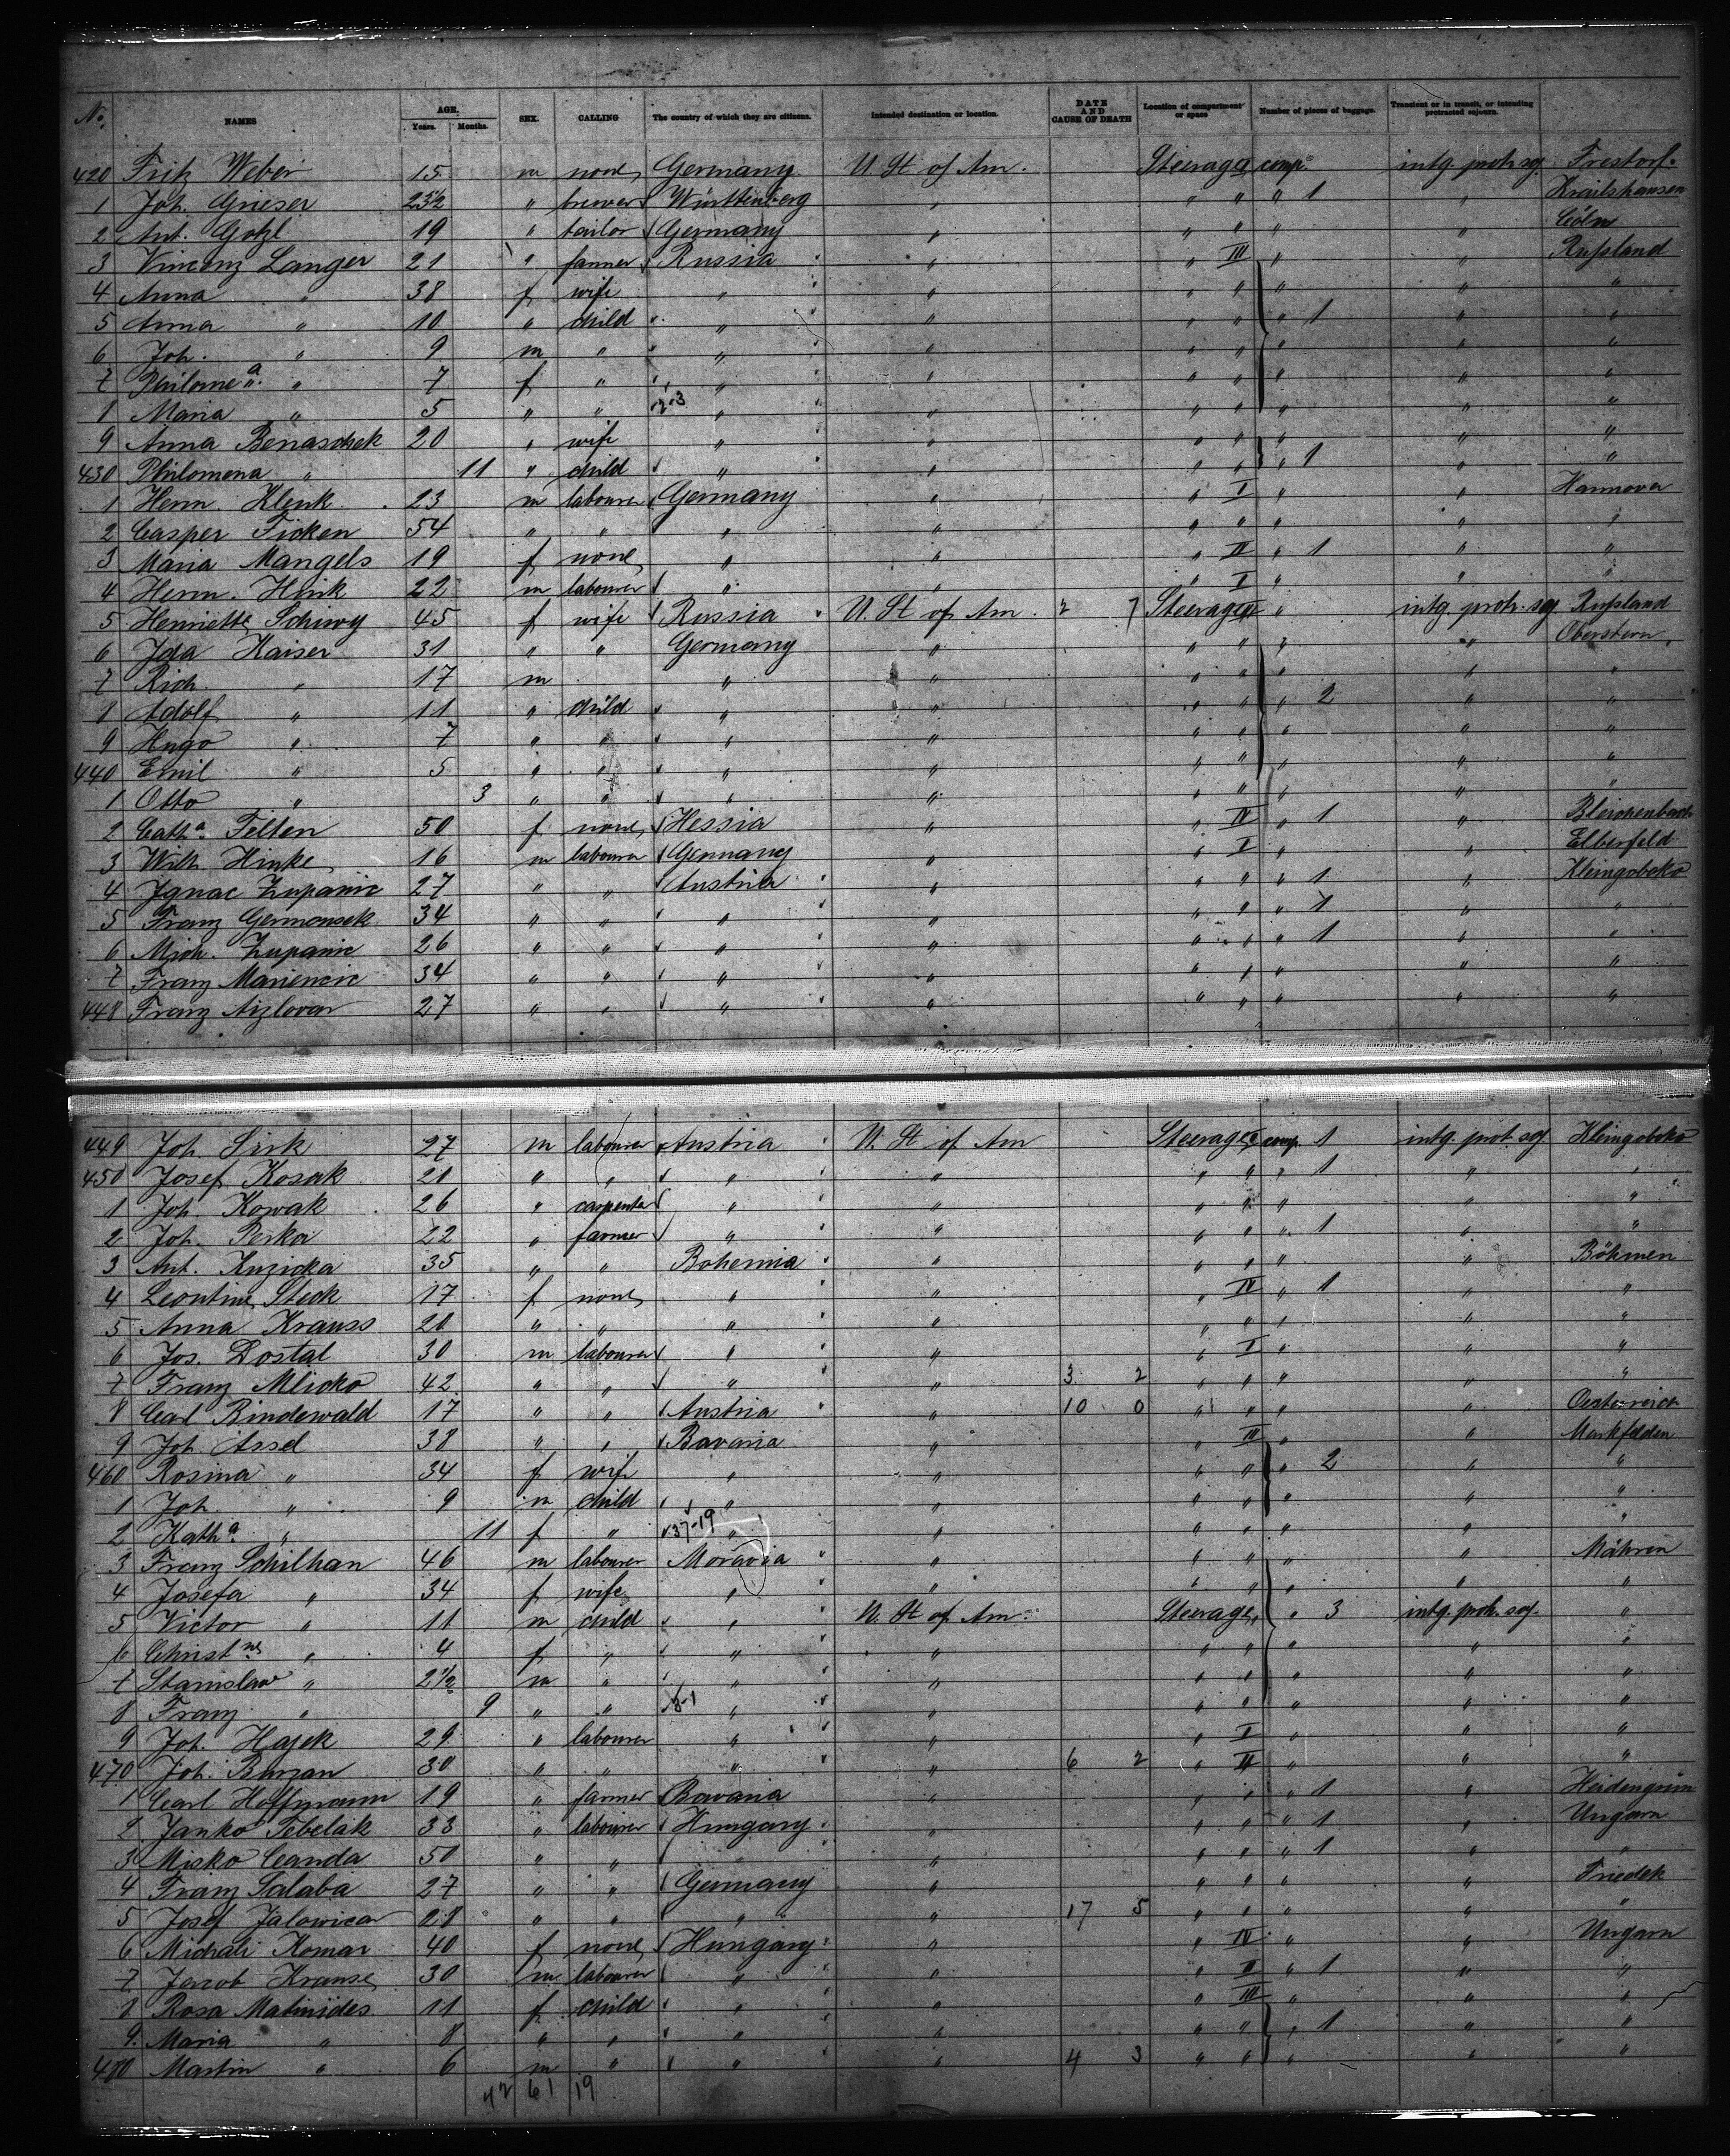 No. NAMES AGE. Years. Months. SEX. CALLING The country of which they are citizens. Intended destination or location. DATE AND CAUSE OF DEATH Location of compartment or space Number of pieces of baggage. Transient or in transit, or intending protracted sojourn.
420 Fritz Weber 15 m none Germany U. St of Am. Steerage comp. intg. protr. soj. Frestorf.
1 Joh. Grieser 23½ " brewer Württemberg " " " " 1 " Krailshausen
2 Ant. Gotzl 19 " tailor Germany " " " " " Cöln
3 Vincenz Langer 21 " farmer Russia " " III " " Rußland
4 Anna " 38 f wife " " " " " " "
5 Anna " 10 " child " " " " " 1 " "
6 Joh. " 9 m " " " " " " " "
7 Philomena " 7 f " " " " " " " "
8 Maria " 5 " " 2-3 " " " " " " "
9 Anna Benaschek 20 " wife " " " " " " "
430 Philomena " 11 " child " " " " " 1 " "
1 Herm. Klenk 23 m labourer Germany " " I " " Hannover
2 Casper Ficken 54 " " " " " " " "
3 Maria Mangels 19 f none " " " IV " 1 " "
4 Herm. Hink 22 m labourer " " " I " " "
5 Henriette Schiwy 45 f wife Russia U. St of Am. 2 7 Steerage " intg. protr. soj. Rußland
6 Ida Kaiser 31 " " Germany " " " " " Oberstern
7 Rich. " 17 m " " " " " " "
8 Adolf " 11 " child " " " " " 2 " "
9 Hugo " 7 " " " " " " " " "
440 Emil " 5 " " " " " " " " "
1 Otto " 3 " " " " " " " " "
2 Catha. Felten 50 f none Hessia " " IV " 1 " Bleichenbach
3 Wilh. Hinke 16 m labourer Germany " " I " " Elberfeld
4 Ignac Zupanic 27 " " Austria " " " " 1 " Kleingoboko
5 Franz Germonsek 34 " " " " " " " 1 " "
6 Mich. Zupanic 26 " " " " " " " 1 " "
7 Franz Mariencic 34 " " " " " " " " "
448 Franz Aizlovar 27 " " " " " " " " "
449 Joh. Sirk 27 m labourer Austria U. St of Am Steerage comp. 1 intg. prot. soj. Kleingoboko
450 Josef Kosak 21 " " " " " " " 1 " "
1 Joh. Kowak 26 " carpenter " " " " " " "
2 Joh. Perkor 22 " farmer " " " " " 1 " "
3 Ant. Kuzicka 35 " " Bohemia " " " " " Böhmen
4 Leontine Steck 17 f none " " " IV " 1 " "
5 Anna Krauss 20 " " " " " " " " "
6 Jos. Dostal 30 m labourer " " " I " " "
7 Franz Mlicko 42 " " " " 3 2 " " " " "
8 Carl Bindewald 17 " " Austria " 10 0 " " " " Oesterreich
9 Joh. Assel 38 " " Bavaria " " III " " Markfelden
460 Rosina " 34 f wife " " " " " 2 " "
1 Joh. " 9 m child " " " " " " "
2 Katha. " 11 f " 37-19 " " " " " " "
3 Franz Schilhan 46 m labourer Moravia " " " " " Mähren
4 Josefa " 34 f wife " " " " " " "
5 Victor " 11 m child " U. St of Am. Steerage " " 3 intg. protr. soj. "
6 Christne " 4 f " " " " " " " "
7 Stanislaw " 2½ m " " " " " " " "
8 Franz " 9 " " 8-1 " " " " " " "
9 Joh. Hajek 29 " labourer " " " I " " "
470 Joh. Burzan 30 " " " " 6 2 " II " " "
1 Carl Hoffmann 19 " farmer Bavaria " " " " 1 " Heidengrün
2 Janko Tebelák 33 " labourer Hungary " " " " 1 " Ungarn
3 Misko Canda 50 " " " " " " " 1 " "
4 Franz Salaba 27 " " Germany " " " " " Friedek
5 Josef Jalowicar 28 " " " " 17 5 " " " " "
6 Michali Komar 40 f none Hungary " " IV " " Ungarn
7 Jacob Krause 30 m labourer " " " II " 1 " "
8 Rosa Matinides 11 f child " " " III " " "
9 Maria " 8 " " " " " " " 1 " "
480 Martin " 6 m " " " 4 3 " " " " "
42 61 19